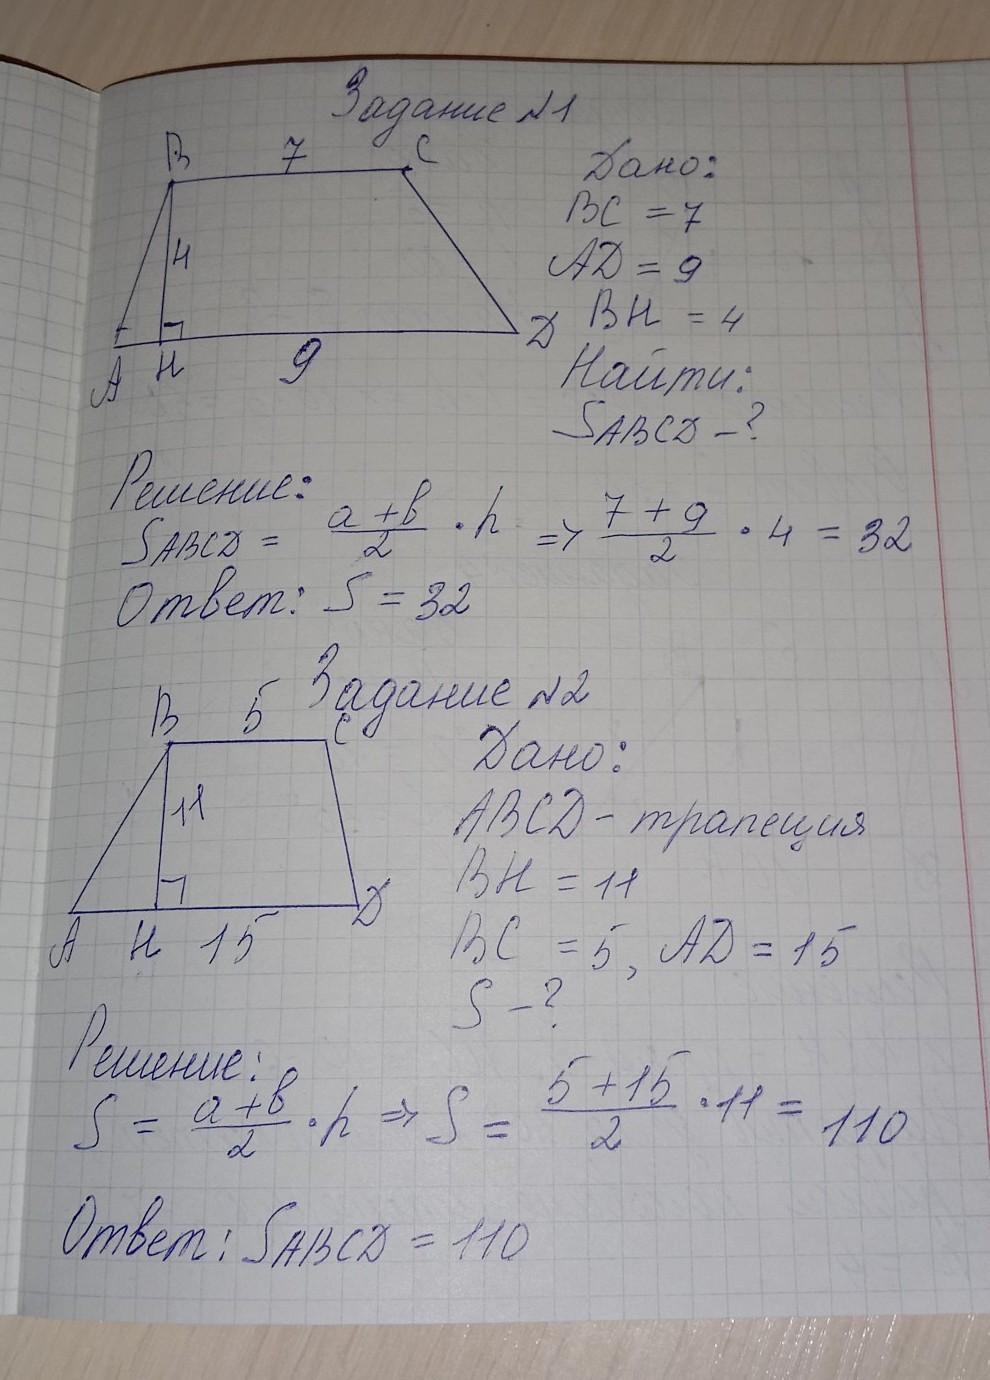 Задание №1
B 7 C
4
A H 9 D
Дано:
BC = 7
AD = 9
BH = 4
Найти:
SABCD - ?
Решение:
SABCD = a+b/2 · h => 7+9/2 · 4 = 32
Ответ: S = 32
Задание №2
B 5 C
11
A H 15 D
Дано:
ABCD - трапеция
BH = 11
BC = 5, AD = 15
S - ?
Решение:
S = a+b/2 · h => S = 5+15/2 · 11 = 110
Ответ: SABCD = 110